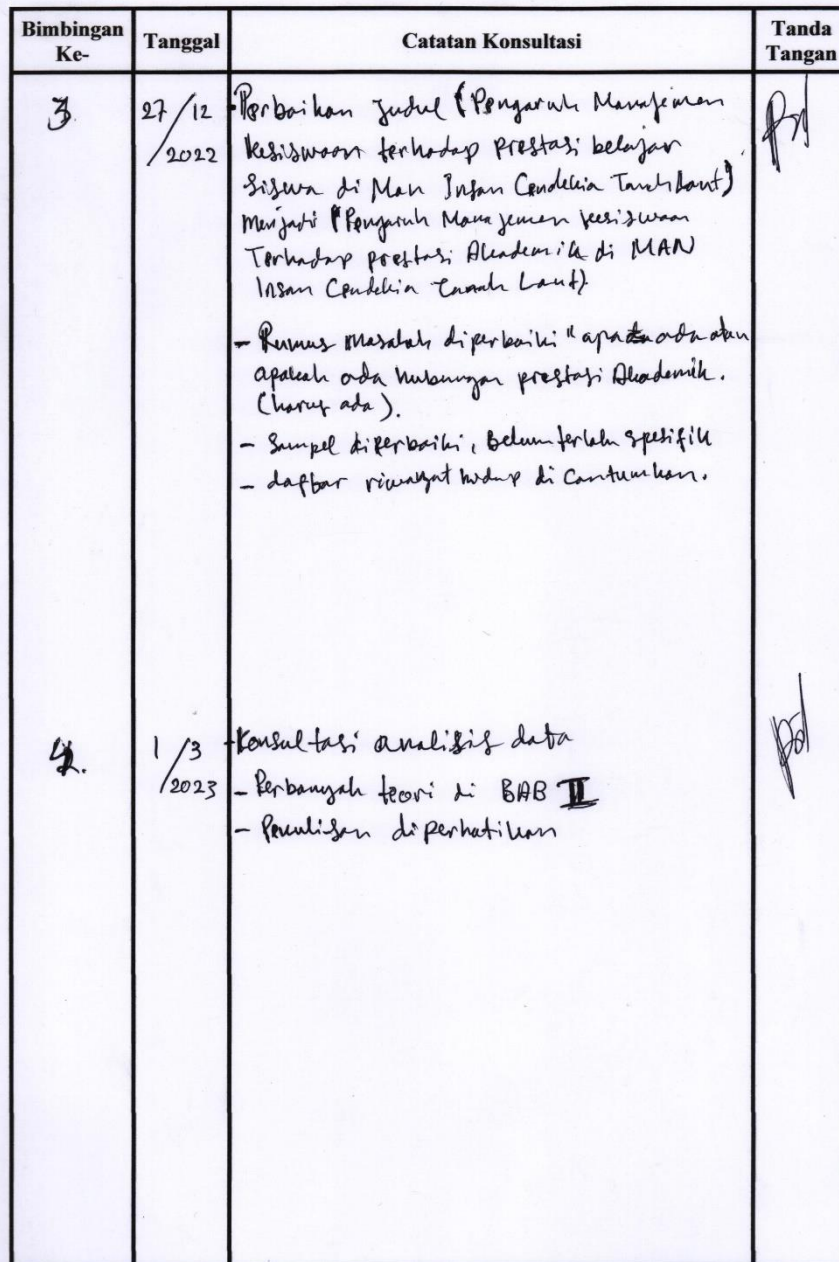 Bimbingan Ke-
Tanggal
Catatan Konsultasi
Tanda Tangan
3.
27/12/2022
- Perbaikan Judul (Pengaruh Manajemen
kesiswaan terhadap prestasi belajar
siswa di Man Insan Cendekia Tanah Laut)
menjadi (Pengaruh Manajemen kesiswaan
Terhadap prestasi Akademik di MAN
Insan Cendekia Tanah Laut).
- Rumus masalah diperbaiki "apa ada atau
apakah ada hubungan prestasi Akademik.
(harus ada).
- Sampel diperbaiki, Belum terlalu spesifik
- daftar riwayat hidup di Cantumkan.
4.
1/3/2023
- Konsultasi analisis data
- Perbanyak teori di BAB II
- Penulisan diperhatikan